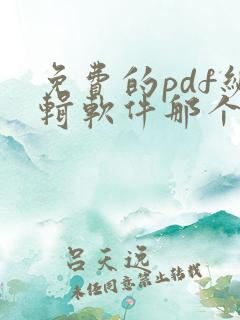 免費的pdf編
輯軟件那个
呂天逸
未任同意禁止转载